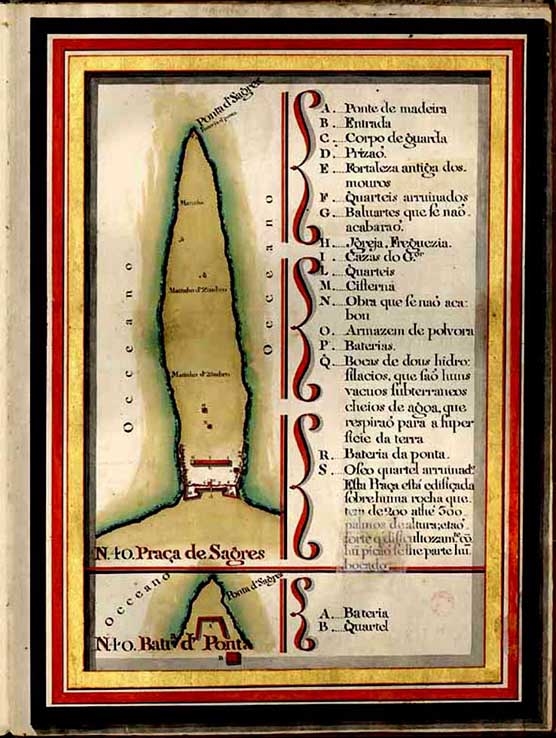 Ponta d'Sagres
Occeano
Occeano
Matinho
Matinho d'Zimbro
Matinho d'Zimbro
N.40. Praça de Sagres
A. Ponte de madeira
B. Entrada
C. Corpo de guarda
D. Prizaõ.
E. Fortaleza antiga dos
mouros
F. Quarteis arruinados
G. Baluartes que se naõ
acabaraõ.
H. Igreja, Freguezia.
I. Cazas do G.ºr
L. Quarteis
M. Cisterna
N. Obra que se naõ aca:
bou
O. Armazem de polvora
P. Baterias.
Q. Bocas de dous hidro:
filacios, que saõ huns
vacuos subterraneos
cheios de agoa, que
respiraõ para a super
ficie da terra
R. Bateria da ponta.
S. quartel arruinad.
Esta Praça está edificada
sobre huma rocha que
tem de 200 athé 300
palmos de altura, e taõ
forte q dificultozam.te cõ
hũ picaõ se lhe parte hũ
bocado
Occeano
Ponta d'Sagres
N.40. Bat.a d' Ponta
B
A. Bateria
B. Quartel